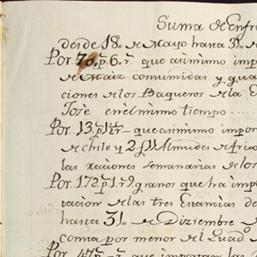 Suma de Enfre
desde 18,, de Mayo hasta 31,, de
Por 70,,p.s 6,,r.s que asimismo imp
de Maiz consumidas y gua
ciones de los Baqueros de la E
Jose en el mismo tiempo
Por 13,,p.s que asimismo impor
de chile y 2,,f.s Almudes de frio
las raciones semanarias de los
Por 172,,p.s 1,,r.l 9,,granos que ha imp
racion de las tres Estancias de
hasta 31,, de Diciembre
consta por menor el Quad.no
Por que importan las